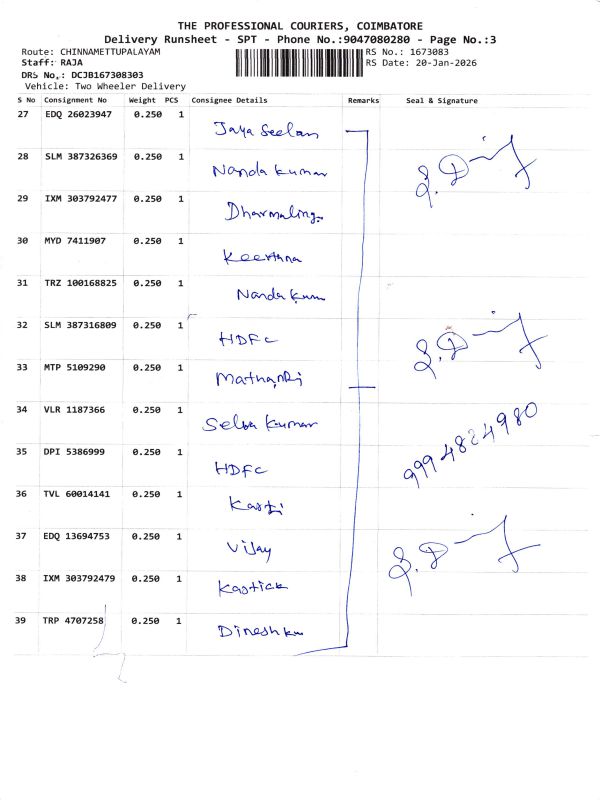 THE PROFESSIONAL COURIERS, COIMBATORE
Delivery Runsheet - SPT - Phone No.:9047080280 - Page No.:3
Route: CHINNAMETTUPALAYAM RS No.: 1673083
Staff: RAJA RS Date: 20-Jan-2026
DRS No,: DCJB167308303
Vehicle: Two Wheeler Delivery
S No Consignment No Weight PCS Consignee Details Remarks Seal & Signature
27 EDQ 26023947 0.250 1 Jaya Seelan
28 SLM 387326369 0.250 1 Nanda kumar
29 IXM 303792477 0.250 1 Dharmaling
30 MYD 7411907 0.250 1 Keertana
31 TRZ 100168825 0.250 1 Nanda kum
32 SLM 387316809 0.250 1 HDFC
33 MTP 5109290 0.250 1
34 VLR 1187366 0.250 1 Selva kumar
35 DPI 5386999 0.250 1 HDFC 9994824980
36 TVL 60014141 0.250 1
37 EDQ 13694753 0.250 1 Vijay
38 IXM 303792479 0.250 1 Kartick
39 TRP 4707258 0.250 1 Dinesh ku